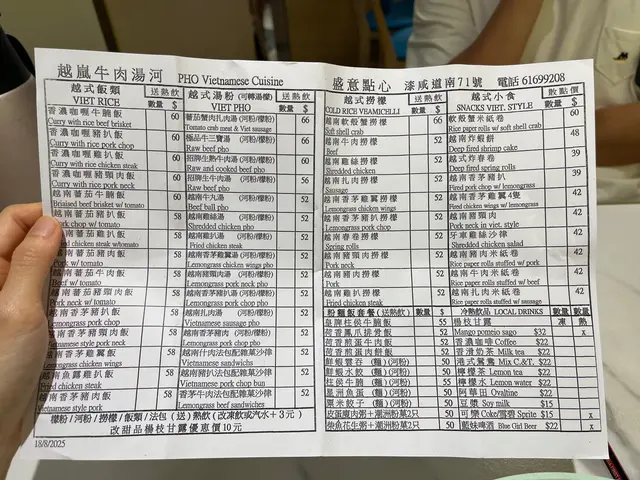 越嵐牛肉湯河 PHO Vietnamese Cuisine 盛意點心 漆咸道南71號 電話 61699208
越式飯類 送熱飲
VIET RICE 數量 $
香濃咖喱牛腩飯 60
Curry with rice beef brisket
香濃咖喱豬扒飯 60
Curry with rice pork chop
香濃咖喱雞扒飯 60
Curry with rice chicken steak
香濃咖喱豬頸肉飯 60
Curry with rice pork neck
越南蕃茄牛腩飯 60
Briaised beef brisket w/ tomato
越南蕃茄豬扒飯 58
Pork chop w/ tomato
越南蕃茄雞扒飯 58
chicken steak w/tomato
58
Pork w/ tomato
越南蕃茄牛肉飯 58
Beef w/ tomato
越南蕃茄豬頸肉飯 58
Pork neck w/ tomato
越南香茅豬頸飯 58
Vietnamese style pork neck
越南香茅雞翼飯 58
Lemongrass chicken wings
越南魚露雞扒飯 58
Fried chicken steak
越南香茅豬肉飯 58
Vietnamese style pork
越式湯粉 (可轉湯檬) 送熱飲
VIET PHO 數量 $
蕃茄蟹肉扎肉湯 (河粉/檬粉) 66
Tomato crab meat & Viet sausage
極品牛三寶湯 (河粉/檬粉) 66
Raw beef pho
招牌生熟牛肉湯 (河粉/檬粉) 60
Raw and cooked beef pho
招牌生牛肉湯 (河粉/檬粉) 56
Raw beef pho
越南牛丸湯 (河粉/檬粉) 52
Beef ball pho
越南雞絲湯 (河粉/檬粉) 52
Shredded chicken pho
越南雞扒湯 (河粉/檬粉) 52
Fried chicken steak
越南香茅雞翼湯 (河粉/檬粉) 52
Lemongrass chicken wings pho
越南豬頸肉湯 (河粉/檬粉) 52
Lemongrass pork neck pho
越南香茅豬扒湯 (河粉/檬粉) 52
Lemongrass pork chop pho
越南扎肉湯 (河粉/檬粉) 52
Vietnamese sausage pho
越南香茅豬扒 (河粉/檬粉) 52
Lemongrass pork chop pho
越南什肉法包配雜菜沙律 52
Vietnamese sandwichs
越南豬扒法包配雜菜沙律 52
Vietnamese pork chop bun
香茅牛肉法包配雜菜沙律 52
Lemongrass beef sandwiches
越式撈檬 送熱飲
COLD RICE VEAMICELLI 數量 $
越南軟殼蟹撈檬 66
Soft shell crab
越南牛肉撈檬 52
Beef
越南雞絲撈檬 52
Shredded chicken
越南扎肉撈檬 52
Sausage
越南香茅雞翼撈檬 52
Lemongrass chicken wings
越南香茅豬扒撈檬 52
Lemongrass pork chop
越南春卷撈檬 52
Spring rolls
越南豬頸肉撈檬 52
Pork neck
越南豬肉撈檬 52
Pork
越南雞扒撈檬 52
Fried chicken steak
越式小食 散點價
SNACKS VIET. STYLE 數量 $
軟殼蟹米紙卷 60
Rice paper rolls w/ soft shell crab
越南炸蝦餅 48
Deep fired shrimp cake
越式炸春卷 39
Deep fired spring rolls
越南香茅豬扒 39
Fired pork chop w/ lemongrass
越南香茅雞翼4隻 42
Fired chicken wings w/ lemongrass
越南豬頸肉 42
Pork neck in viet. style
牙車雞絲沙律 42
Shredded chicken salad
越南豬肉米紙卷 42
Rice paper rolls stuffed w/ pork
越南牛肉米紙卷 42
Rice paper rolls stuffed w/ beef
越南扎肉米紙卷 42
Rice paper rolls stuffed w/ sausage
粉麵飯套餐 (送熱飲) 數量 $
皇牌柱侯牛腩飯 55
荷香鳳爪排骨飯 52
荷香煎蛋牛肉飯 52
荷香煎蛋肉餅飯 52
鮮蝦雲吞 (麵) (河粉) 50
鮮蝦水餃 (麵) (河粉) 50
柱侯牛腩 (麵) (河粉) 55
星洲魚蛋 (麵) (河粉) 50
粟米餃子 (麵) (河粉) 50
皮蛋瘦肉粥+潮洲粉菓2只 50
柴魚花生粥+潮洲粉菓2只 50
冷熱飲品 LOCAL DRINKS 數量 數量
楊枝甘露 凍 熱
Mango pomelo sago $32 x
香濃咖啡 Coffee $22
香滑奶茶 Milk tea $22
港式鴛鴦 Mix C.&T. $22
檸檬茶 Lemon tea $22
檸檬水 Lemon water $22
阿華田 Ovaltine $22
豆漿 Soy milk $15
可樂 Coke/雪碧 Sprite $15 x
藍妹啤酒 Blue Girl Beer $22 x
檬粉/河粉/撈檬/飯類/法包 (送) 熱飲 (改凍飲或汽水+3元)
改甜品楊枝甘露優惠價10元
18/8/2025